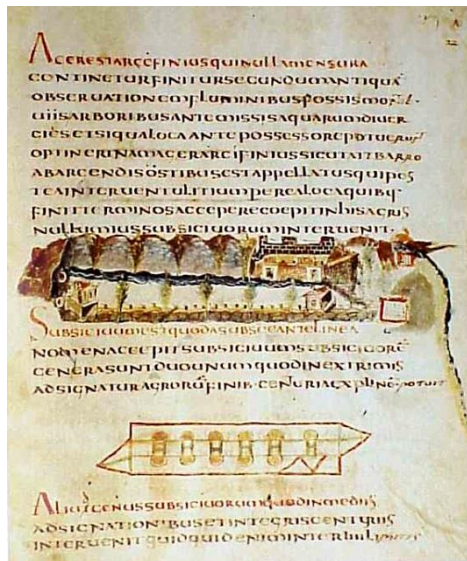 AGERESTARCEFINIUSQUINULLAMENSURA
CONTINETURFINITURSECUNDUMANTIQUĀ
OBSERVATIONEMFLUMINIBUSFOSSISMO
UIISARBORIBUSANTEMISSISAQUARUMDIUER
ETSIQUALOCAANTEPOSSESSOREPOTUE
OPTINERINAMAGERARCIFINIUSSICUTAITBARRO
ABARCENDISOSTIBUSESTAPPELLATUSQUIPOS
TEAINTERUENTULITIUMPEREALOCAQUIBQ
FINITTERMINOSACCEPERECOEPITINHISAGRIS
NULLUMIUSSUBSICIUORUMINTERUENIT·
SUBSICIUUMESTQUODASUBSECANTELINEA
NOMENACCEPITSUBSICIUUM
GENERASUNTDUOUNUMQUODINEXTREMIS
ADSIGNATORUMAGRORŪFINIB·CENTURIAEXPLINŌ·POTUIT
ALIUTGENUSSUBSICIUORUMQUODINMEDIIS
ADSIGNATION·BUSETINTEGRISCENTURIIS
INTERUENITQUIDQUIDENIMINTER